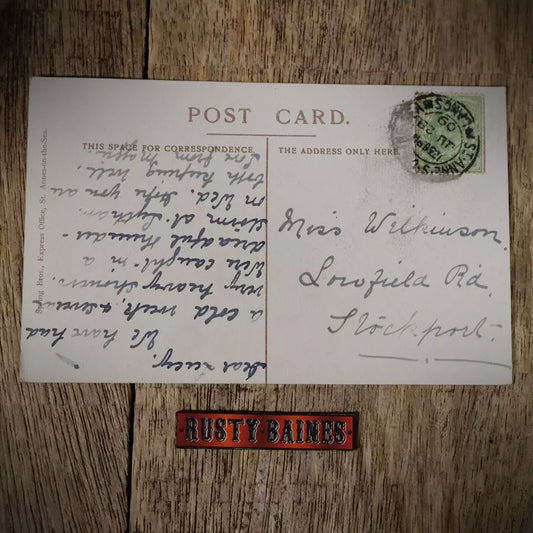 POST CARD.
THIS SPACE FOR CORRESPONDENCE.
THE ADDRESS ONLY HERE.
Dear Lucy,
We have had
a cold week, & several
very heavy showers.
Were caught in a
dreadful thunder-
storm at Lytham
on Wed. Hope you are
both keeping well,
Love from Maggie.
Miss Wilkinson.
Lowfield Rd.
Stockport.
Spring Bros., Express Office, St. Annes-on-the-Sea.
ST. ANNES
JL
09
RUSTY·BAINES